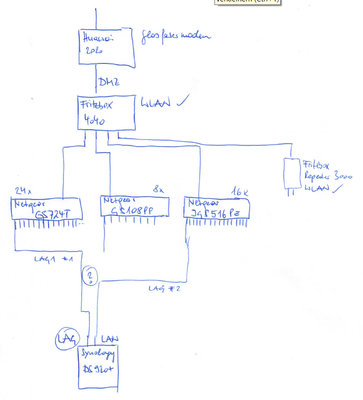 Huawei
Glasfasermodem
DMZ
Fritzbox
4040
WLAN ✓
Fritzbox
Repeater 3000
WLAN ✓
24x
Netgear
GS724T
8x
Netgear
GS108PP
16x
Netgear
JGS516PE
LAG #1
?
LAG #2
LAG
LAN
Synology
DS920+